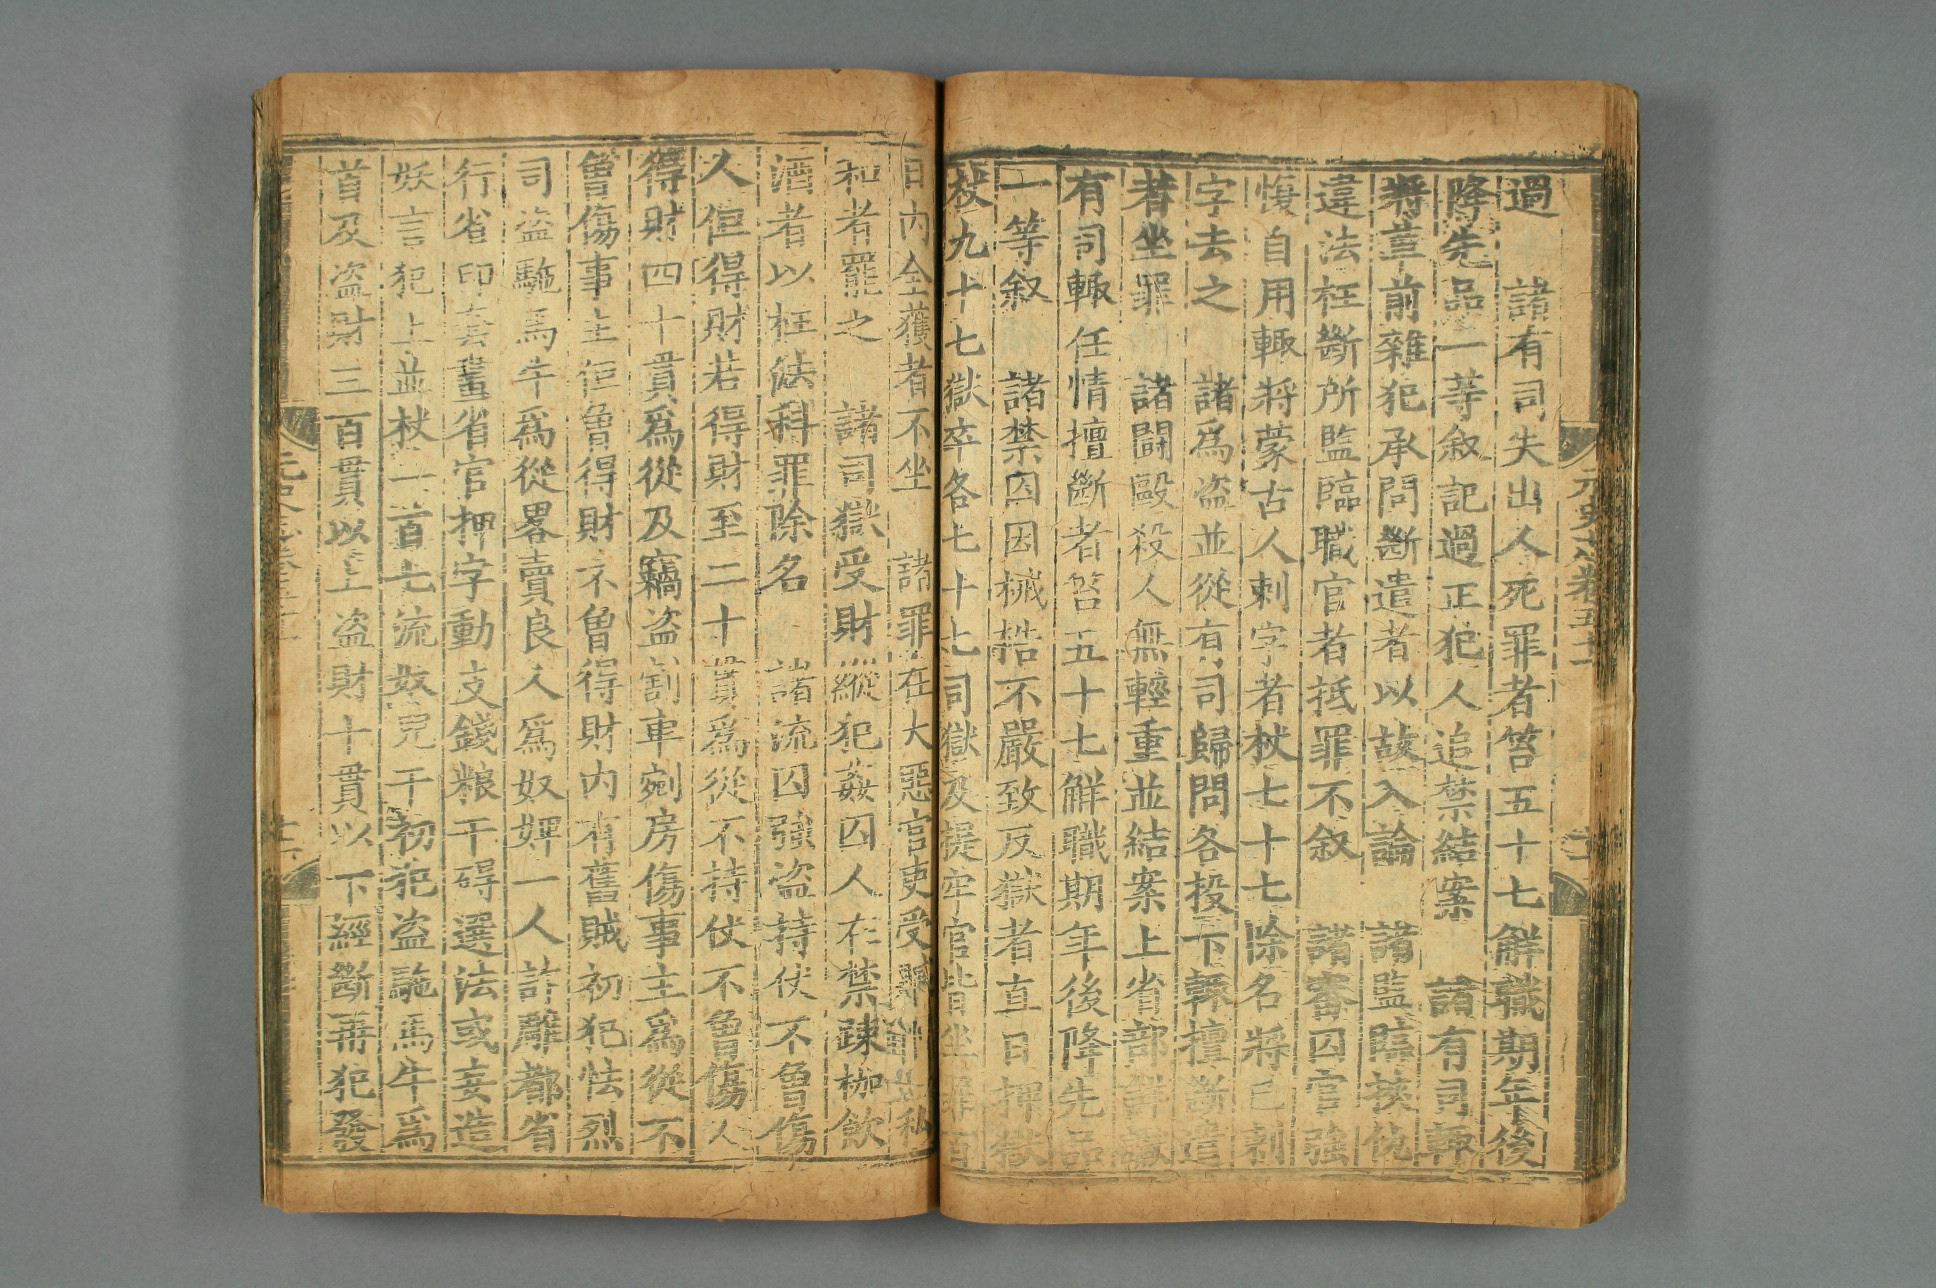 過 諸有司失出人死罪者笞五十七解職期年後
降先品一等敘記過正犯人追禁結案 諸有司輒
將革前雜犯承問斷遣者以故入論 諸監臨挾仇
違法枉斷所監臨職官者抵罪不叙 諸審囚官強
愎自用輒將蒙古人刺字者杖七十七除名將已刺
字去之 諸爲盗並從有司歸問各投下輒擅斷遣
者坐罪 諸鬭毆殺人無輕重並結案上省部詳讞
有司輒任情擅斷者笞五十七解職期年後降先品
一等叙 諸禁囚因械梏不嚴致反獄者直日押獄
杖九十七獄卒各七十七司獄及提牢官皆坐罪百
日内全獲者不坐 諸罪在大惡官吏受贓縱令私
和者罷之 諸司獄受財縱犯姦囚人在禁疎枷飲
酒者以枉法科罪除名 諸流囚強盗持仗不曾傷
人但得財若得財至二十貫爲從不持仗不曾傷人
得財四十貫爲從及竊盗割車剜房傷事主爲從不
曾傷事主但曾得財不曾得財内有舊賊初犯怯烈
司盗駞馬牛爲從畧賣良人爲奴婢一人詐雕都省
行省印套畫省官押字動支錢粮干碍選法或妄造
妖言犯上並杖一百七流奴兒干初犯盗駞馬牛爲
首及盗財三百貫以上盗財十貫以下經斷再犯發